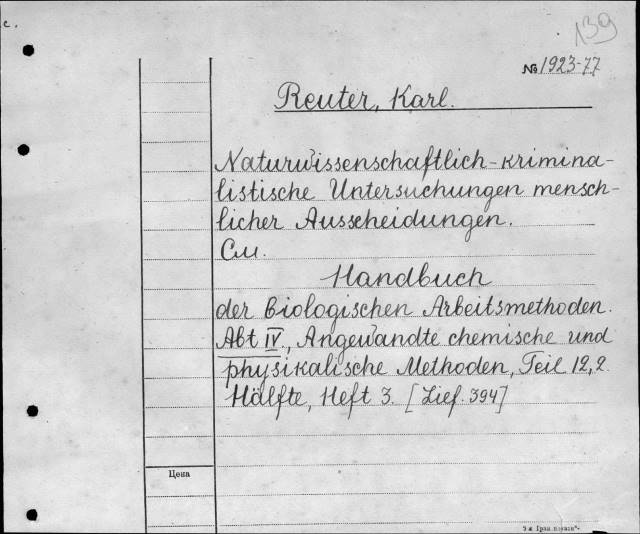 c.
139
№ 1923-77
Reuter, Karl.
Naturwissenschaftlich-krimina-
listische Untersuchungen mensch-
licher Ausscheidungen.
См.
Handbuch
der biologischen Arbeitsmethoden.
Abt IV., Angewandte chemische und
physikalische Methoden, Teil 12, 2.
Hälfte, Heft 3. [Lief. 394]
Цена